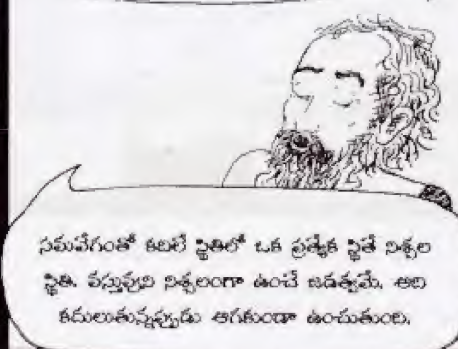 సమవేగంతో కదిలే స్థితిలో ఒక ప్రత్యేక స్థితే నిశ్చల
స్థితి. వస్తువుని నిశ్చలంగా ఉంచే జడత్వమే, అది
కదులుతున్నప్పుడు ఆగకుండా ఉంచుతుంది.